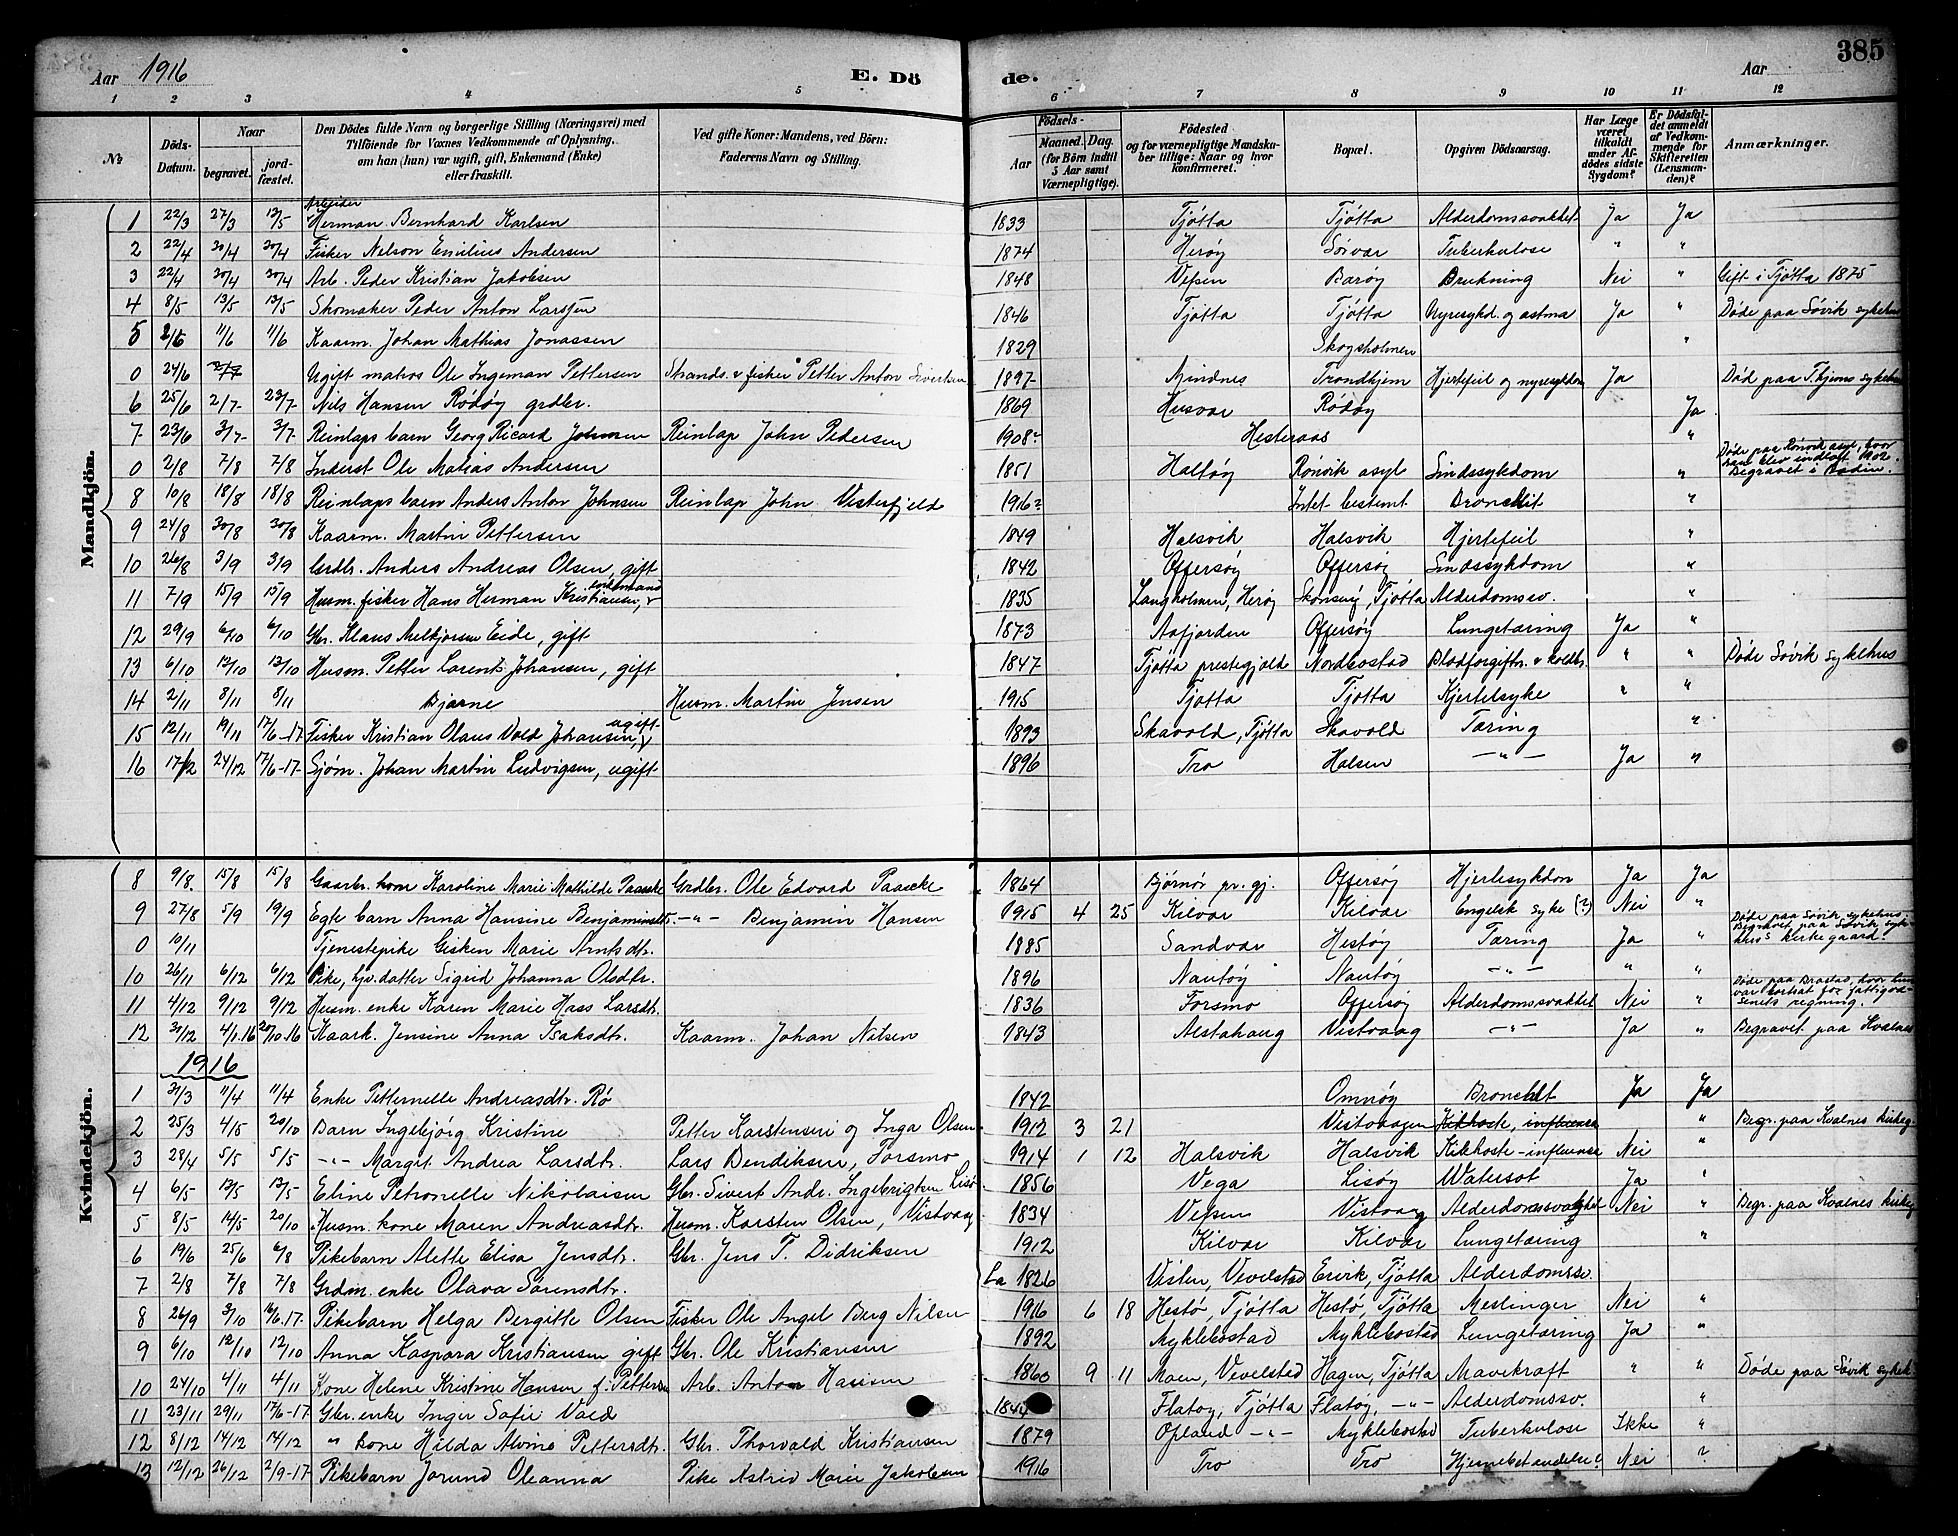 385
Aar 1916 E. Dö de. Aar
1 2 3 4 5 6 7 8 9 10 11 12
№ Döds-Datum. Naar begravet. jordfæstet. Den Dödes fulde Navn og borgerlige Stilling (Næringsvei) med Tilföiende for Voxnes Vedkommende af Oplysning, om han (hun) var ugift, gift, Enkemand (Enke) eller fraskilt. Ved gifte Koner: Mandens, ved Börn: Faderens Navn og Stilling. Födsels- Aar Maaned. Dag. (for Börn indtil 5 Aar samt Værnepligtige). Födested og for værnepligtige Mandskaber tillige: Naar og hvor konfirmeret. Bopæl. Opgiven Dödsaarsag. Har Læge været tilkaldt under Afdödes sidste Sygdom? Er Dödsfaldet anmeldt af Vedkommende for Skifteretten (Lensmanden)? Anmærkninger.
Mandkjön.
1 22/3 27/3 13/5 Arbeider Herman Bernhard Karlsen 1833 Tjøtta Tjøtta Alderdomssvakhet Ja Ja
2 22/4 30/4 30/4 Fisker Nelson Emilius Andersen 1874 Herøy Sørvær Tuberkulose " "
3 22/4 30/4 30/4 Arb. Peder Kristian Jakobsen 1848 Vefsen Barøy Drukning Nei " Gift i Tjøtta 1875
4 8/5 13/5 13/5 Skomaker Peder Anton Larssen 1846 Tjøtta Tjøtta Nyresykd. og astma Ja " Døde paa Søvik sykehus
5 2/6 11/6 11/6 Kaarm. Johan Mathias Jonassen 1829 Skogsholmen "
0 24/6 Ugift matros Ole Ingeman Pettersen Strands. & fisker Petter Anton Sivertsen 1897 Mindnes Trondhjem Hjertefeil og nyresykdom Ja Død paa T.hjems sykehus
6 25/6 2/7 23/7 Nils Hansen Rødøy grdbr. 1869 Husvær Rødøy Ja
7 23/6 3/7 3/7 Reinlaps barn Georg Ricard Johnsen Reinlap John Pedersen 1908 Hesteraas "
0 2/8 7/8 7/8 Inderst Ole Matias Andersen 1851 Haltøy Rønvik asyl Sindssykdom " Døde paa Rønvik asyl, hvor han blev indlagt 1902. Begravet i Bodin.
8 10/8 18/8 18/8 Reinlaps barn Anders Anton Johnsen Reinlap John Visterfjeld 1916 Intet bestemt Bronchit "
9 24/8 30/8 30/8 Kaarm. Martin Pettersen 1849 Halsvik Halsvik Hjertefeil "
10 26/8 3/9 3/9 Grdbr. Anders Andreas Olsen, gift 1842 Offersøy Offersøy Sindssykdom "
11 7/9 15/9 15/9 Husm. fisker Hans Herman Kristiansen, enkemand 1835 Langholmen, Herøy Skonseng, Tjøtta Alderdomssv. "
12 29/9 6/10 6/10 Gbr. Klaus Melkjorsen Eide, gift 1873 Aafjorden Offersøy Lungetæring Ja "
13 6/10 12/10 12/10 Husm. Petter Lorents Johansen, gift 1847 Tjøtta prestegjeld Nordbostad Blodforgiftn. & koldbr. " " Døde Søvik sykehus
14 2/11 8/11 8/11 Bjarne Husm. Martin Jensen 1915 Tjøtta Tjøtta Kjertelsyke " "
15 12/11 19/11 17/6-17 Fisker Kristian Olaus Vold Johansen, ugift 1893 Skavold, Tjøtta Skavold Tæring "
16 17/12 24/12 17/6-17 Sjøm. Johan Martin Ludvigsen, ugift 1896 Tro Halsen -"- Ja "
Kvindekjön.
8 9/8 15/8 15/8 Gaarbr. kone Karoline Marie Mathilde Paaske Grdbr. Ole Edvard Paaske 1864 Bjørnør pr.gj. Offersøy Hjertesykdom Ja Ja
9 27/8 5/9 19/9 Egte barn Anna Hansine Benjaminsdtr. -"- Benjamin Hansen 1915 4 25 Kilvær Kilvær Engelsk syke (?) Nei "
0 10/11 Tjenestepike Gisken Marie Arntsdtr. 1885 Sandvær Hestøy Tæring Ja " Døde paa Søvik sykehus Begravet paa Søvik sykehus kirkegaard.
10 26/11 6/12 6/12 Pike, hjv. datter Sigrid Johanna Olsdtr. 1896 Nautøy Nautøy -"- " "
11 4/12 9/12 9/12 Husm. enke Karen Marie Hass Larsdtr. 1836 Forsmo Offersøy Alderdomssvakhet Nei " Døde paa Brastad, hvor hun var bortsat for fattigvæsenets regning.
12 31/12 4/1.16 20/10.16 Kaark. Jensine Anna Isaksdtr. Kaarm. Johan Nilsen 1843 Alstahaug Vistvaag -"- Ja " Begravet paa Kvalnes
1916
1 31/3 11/4 11/4 Enke Petternelle Andreasdtr. Rø 1842 Omnøy Bronchit Ja Ja
2 25/3 4/5 20/10 Barn Ingebjørg Kristine Petter Karstensen og Inga Olsen 1912 3 21 Vistvaagen Kikhoste, influensa " Begr. paa Kvalnes kirkeg.
3 28/4 5/5 5/5 -"- Margit Andrea Larsdtr. Lars Bendiksen, Forsmo 1914 1 12 Halsvik Halsvik Kikhoste-influense Nei "
4 6/5 13/5 13/5 Eline Petronelle Nikolaisen Gbr. Sivert Andr. Ingebrigtsen Lisø 1856 Vega Lisøy Watersot Ja "
5 8/5 14/5 20/10 Husm. kone Maren Andreasdtr. Husm. Karsten Olsen, Vistvaag 1834 Vefsen Vistvaag Alderdomssvakhet Nei " Begr. paa Kvalnes kirkeg.
6 19/6 25/6 6/8 Pikebarn Alette Elisa Jensdtr. Gbr. Jens T. Didriksen 1912 Kilvær Kilvær Lungetæring "
7 2/8 7/8 7/8 Grdm. enke Olava Sørensdtr. Ca 1826 Visten, Vevelstad Ervik, Tjøtta Alderdomssv.
8 26/9 3/10 16/6-17 Pikebarn Helga Bergitte Olsen Fisker Ole Angel Berg Nilsen 1916 6 18 Hestø, Tjøtta Hestø, Tjøtta Meslinger Nei "
9 6/10 12/10 12/10 Anna Kaspara Kristiansen gift Gbr. Ole Kristiansen 1892 Myklebostad Myklebostad Lungetæring Ja "
10 24/10 4/11 4/11 Kone Helene Kristine Hansen f. Pettersen Arb. Anton Hansen 1860 9 11 Moen, Vevelstad Hagen, Tjøtta Mavekræft " " Døde paa Søvik sykeh.
11 23/11 29/11 17/6-17 Gbr. enke Inger Sofie Vold 1844 Flatøy, Tjøtta Flatøy, -"- Alderdomssv. "
12 8/12 14/12 14/12 " kone Hilda Alvine Pettersdtr. Gbr. Thorvald Kristiansen 1879 Opland -"- Myklebostad Tuberkulose Ikke "
13 12/12 26/12 2/9-17 Pikebarn Jorund Oleanna Pike Astrid Marie Jakobsen 1916 Tro Tro Hjernebetændelse? Nei ?